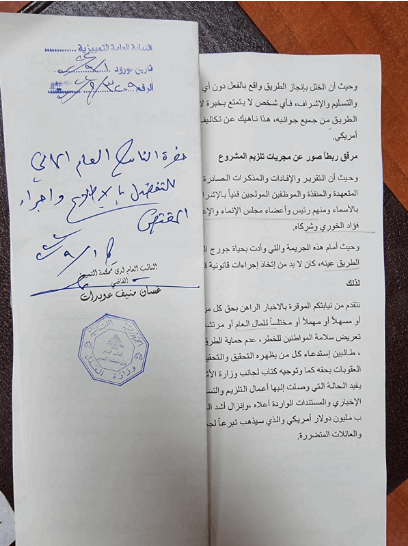 النيابة العامة التمييزية
تاريخ الورود
الرقم
حضرة النائب العام المالي
للتفضل بالاطلاع واجراء
المقتضى
النائب العام لدى محكمة التمييز
القاضي
غسان منيف عويدات
وحيث أن الخلل بإنجاز الطريق واقع بالفعل دون أي
والتسليم والإشراف، فأي شخص لا يتمتع بخبرة لا
الطريق من جميع جوانبه، هذا ناهيك عن تكاليف
أمريكي.
مرفق ربطاً صور عن مجريات تلزيم المشروع
وحيث أن التقرير والإفادات والمذكرات الصادرة
المتعهدة والمنفذة والموظفين المولجين فنياً بالإشراف
بالأسماء ومنهم رئيس وأعضاء مجلس الإنماء والإ
فؤاد الخوري وشركاه.
وحيث أمام هذه الجريمة والتي وأدت بحياة جورج ال
الطريق عينه، كان لا بد من إتخاذ إجراءات قانونية ف
لذلك
نتقدم من نيابتكم الموقرة بالاخبار الراهن بحق كل مر
أو مسهلاً أو مهملاً أو مختلساً للمال العام أو مرتش
تعريض سلامة المواطنين للخطر، عدم حماية الطرق
، طالبين إستدعاء كل من يظهره التحقيق والتحقيق
العقوبات بحقه كما وتوجيه كتاب لجانب وزارة الأش
يفيد الحالة التي وصلت إليها أعمال التلزيم والتس
الإخباري والمستندات الواردة أعلاه ،وإنزال أشد ال
ب مليون دولار أمريكي والذي سيذهب تبرعاً لج
والعائلات المتضررة.